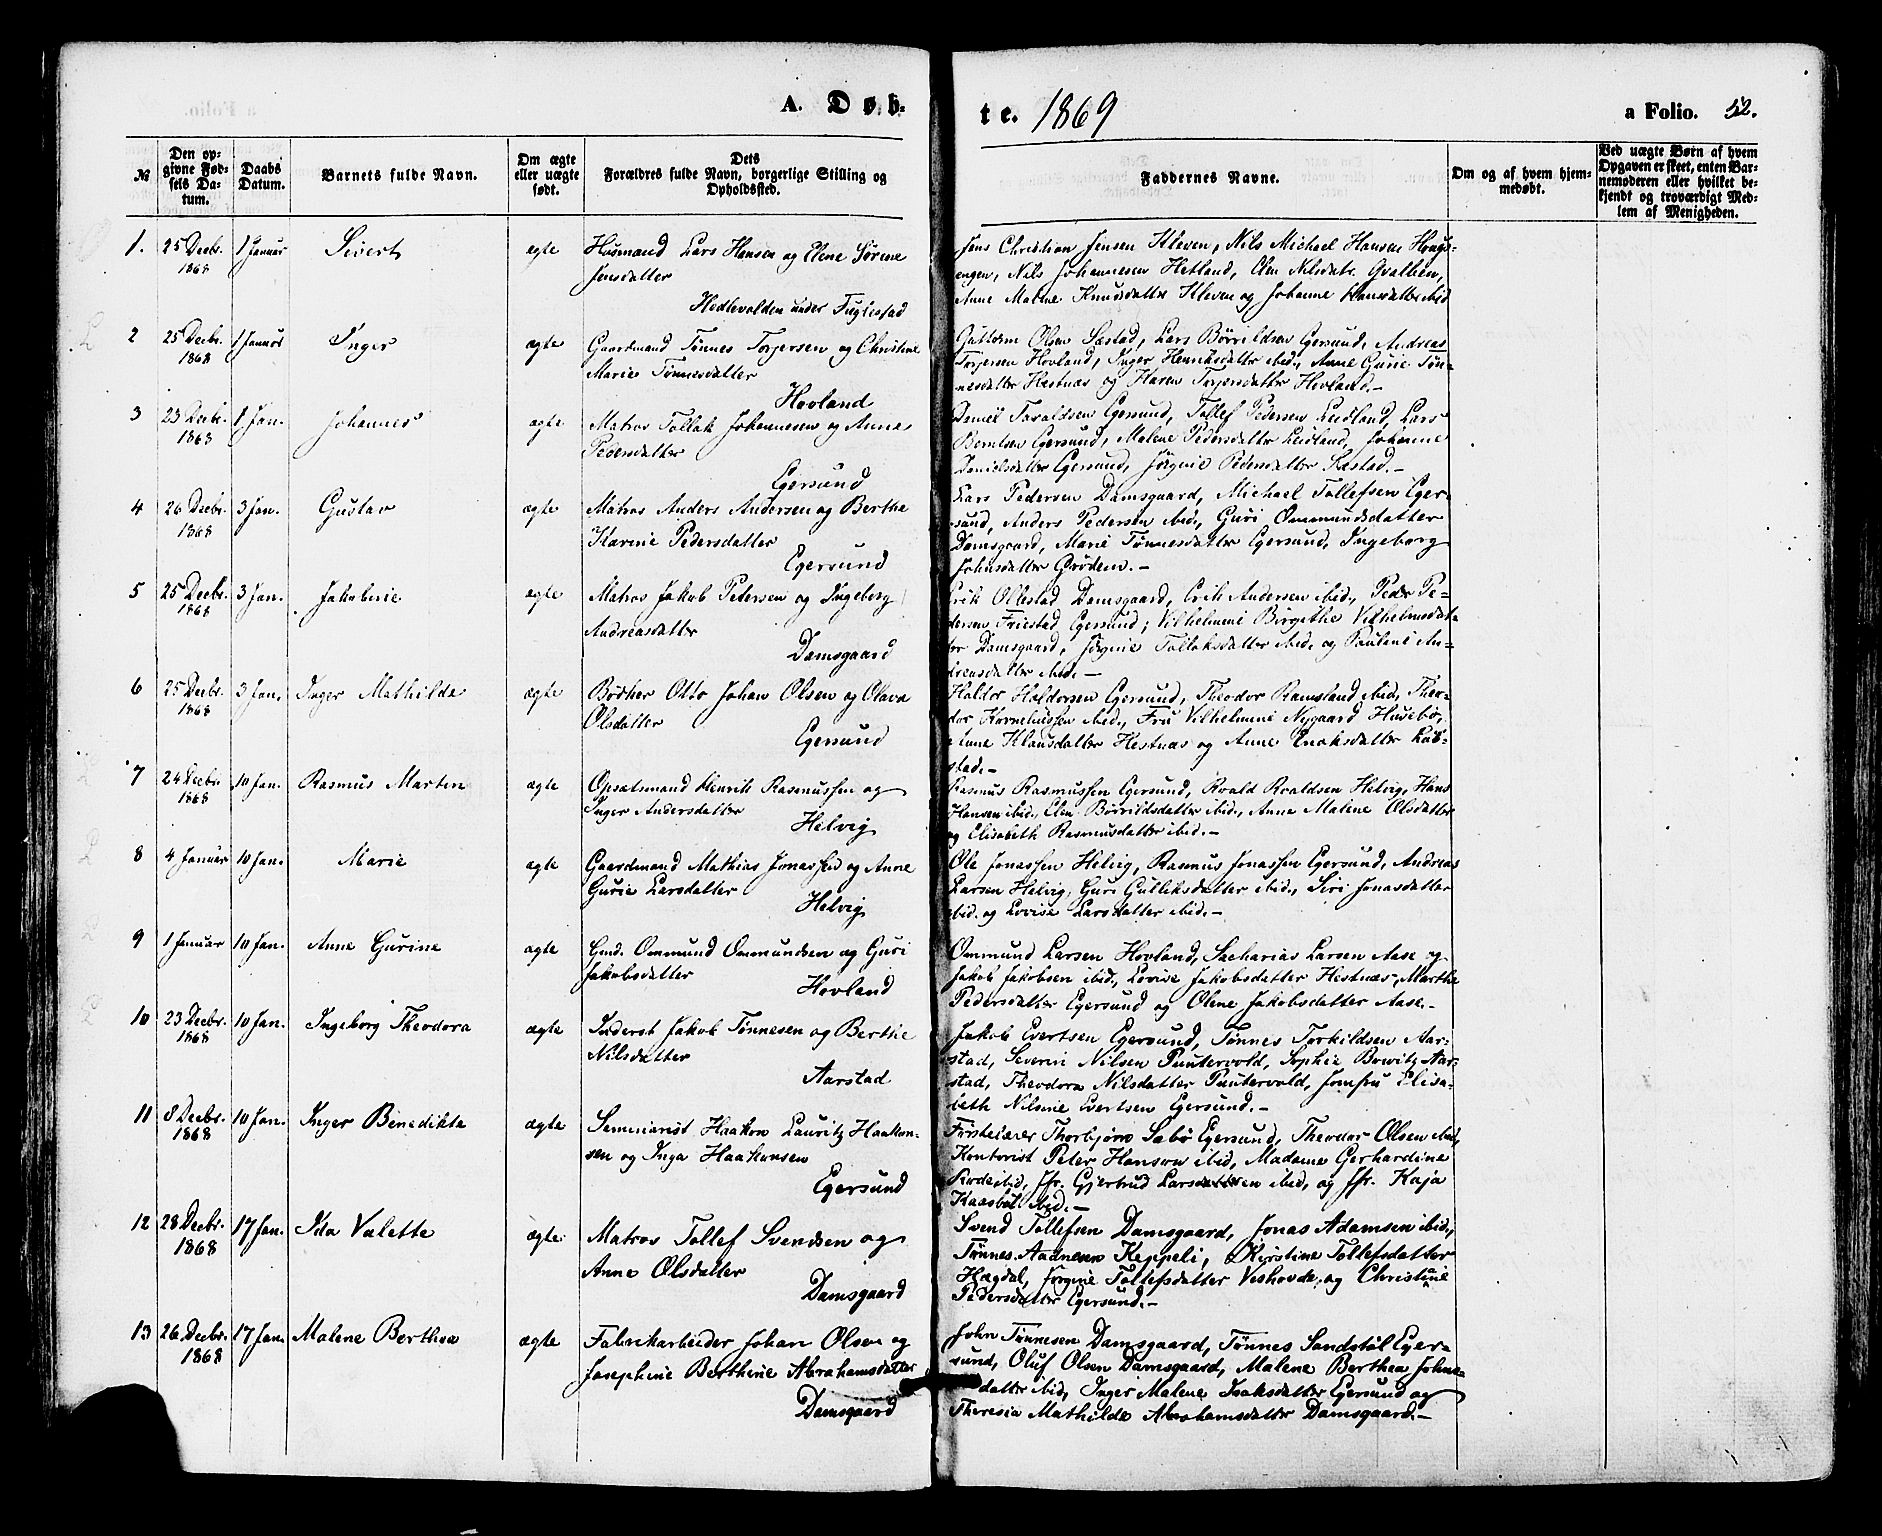 A. Døb-
te. 1869
a Folio. 52.
№
Den op-
givne Fød-
sels Da-
tum.
Daabs
Datum.
Barnets fulde Navn.
Om ægte
eller uægte
født.
Dets
Forældres fulde Navn, borgerlige Stilling og
Opholdssted.
Faddernes Navne.
Om og af hvem hjem-
medøbt.
Ved uægte Børn af hvem
Opgaven er skeet, enten Bar-
nemoderen eller hvilket be-
kjendt og troværdigt Med-
lem af Menigheden.
1. 25 Decbr. 1868 1 Januar Sivert ægte
Husmand Lars Hansen og Elene Sørine
Jensdatter
Hedlevolden under Fuglestad
Jens Christian Jensen Kleven, Nils Michael Hansen Hougs-
engen, Nils Johannesen Hetland, Elen Nilsdatr.
Anne Malene Knudsdatter Kleven og Johanne Hansdatter ibid
2 25 Decbr. 1868 1 Januar Inger ægte
Gaardmand Tønnes Torjersen og Christine
Marie Tønnesdatter
Hovland
Guttorm Olsen Sæstad, Lars Børrildsen Egersund, Andreas
Torjersen Hovland, Inger Henriksdatter ibid., Anne Gurie Tøn-
nesdatter Hestnæs og Karen Torjersdatter Hovland.-
3 23 Decbr. 1868 1 Jan. Johannes ægte
Matros Tollak Johannesen og Anne
Pedersdatter
Egersund
Daniel Taraldsen Egersund, Tollef Pedersen Leidland, Lars
Berntsen Egersund, Malene Pedersdatter Leidland, Johanne
Danielsdatter Egersund, Jørgine Pedersdatter Sæstad.-
4 26 Decbr. 1868 3 Jan. Gustav ægte
Matros Anders Andersen og Berthe
Karine Pedersdatter
Egersund
Lars Pedersen Damsgaard, Michael Tollefsen Eger-
sund, Anders Pedersen ibid., Guri Ommundsdatter
Damsgaard, Marie Tønnesdatter Egersund, Ingeborg
Johnsdatter Grødem.-
5 25 Decbr. 1868 3 Jan. Jakobine ægte
Matros Jakob Petersen og Ingeborg
Andreasdatter
Damsgaard
Erik Ollestad Damsgaard, Erik Andersen ibid., Peder Pe-
dersen Friestad Egersund; Vilhelmine Birgithe Vilhelmsdat-
ter Damsgaard, Jørgine Tollaksdatter ibid. og Pauline An-
dreasdatter ibid.-
6 25 Decbr. 1868 3 Jan. Inger Mathilde ægte
Bødker Otto Johan Olsen og Olava
Olsdatter
Egersund
Haldor Haldorsen Egersund, Theodor Ramsland ibid., Theo-
dor Korneliussen ibid., Fru Vilhelmine Nygaard Husebø,
Anne Klausdatter Hestnæs og Anne Enoksdatter
stad.-
7 24 Decbr. 1868 10 Jan. Rasmus Martin ægte
Opsatsmand Henrik Rasmussen og
Inger Andersdatter
Helvig
Rasmus Rasmussen Egersund, Roald Roaldsen Helvig, Hans
Hansen ibid., Elen Børrildsdatter ibid., Anna Malene Olsdatter
og Elisabeth Rasmusdatter ibid.-
8 4 Januar 10 Jan. Marie ægte
Gaardmand Mathias Jonassen og Anne
Gurie Larsdatter
Helvig
Ole Jonassen Helvig, Rasmus Jonassen Egersund, Andreas
Larsen Helvig, Guri Gulliksdatter ibid., Siri Jonasdatter
ibid. og Lovise Larsdatter ibid.-
9 1 Januar 10 Jan. Anne Gurine ægte
Gmd. Ommund Ommundsen og Guri
Jakobsdatter
Hovland
Ommund Larsen Hovland, Sacharias Larsen Aase og
Jakob Jakobsen ibid., Lovise Jakobsdatter Hestnæs, Marthe
Pedersdatter Egersund og Olene Jakobsdatter Aase.-
10 23 Decbr. 1868 10 Jan. Ingeborg Theodora ægte
Inderst Jakob Tønnesen og Berthe
Nilsdatter
Aarstad
Jakob Evertsen Egersund, Tønnes Torkildsen Aar-
stad, Severin Nilsen Puntervold, Sophie Bowitz Aar-
stad, Theodora Nilsdatter Puntervold, Jomfru Elisa-
beth Nilsine Evertsen Egersund.-
11 8 Decbr. 1868 10 Jan. Inger Benedikta ægte
Seminarist Haakon Lauritz Haakon-
sen og Inga Haakonsen
Egersund
Førstelærer Thorbjørn Sæbø Egersund, Theodor Olsen ibid,
Kontorist Peter Hanson ibid, Madame Gerhardine
ibid, Jfr. Gjertrud Larsdatteren ibid, og Jfr. Kaja
Kaasbøl ibid.-
12 28 Decbr. 1868 17 Jan. Ida Valette ægte.
Matros Tollef Svendsen og
Anne Olsdatter
Damsgaard
Svend Tollefsen Damsgaard, Jonas Adamsen ibid.,
Tønnes Aadnesen Keppeli, Kirstine Tollefsdatter
Hægdal, Jørgine Tollefsdatter Veshovde, og Christine
Pedersdatter Egersund.-
13 26 Decbr. 1868 17 Jan. Malene Berthea ægte
Fabrikarbeider Johan Olsen og
Josephine Berthine Abrahamsdatter
Damsgaard
John Tønnesen Damsgaard, Tønnes Sandstøl Eger-
sund, Oluf Olsen Damsgaard, Malene Berthea Johne-
datter ibid, Inger Malene Isaksdatter Egersund og
Theresia Mathilde Abrahamsdatter Damsgaard.-